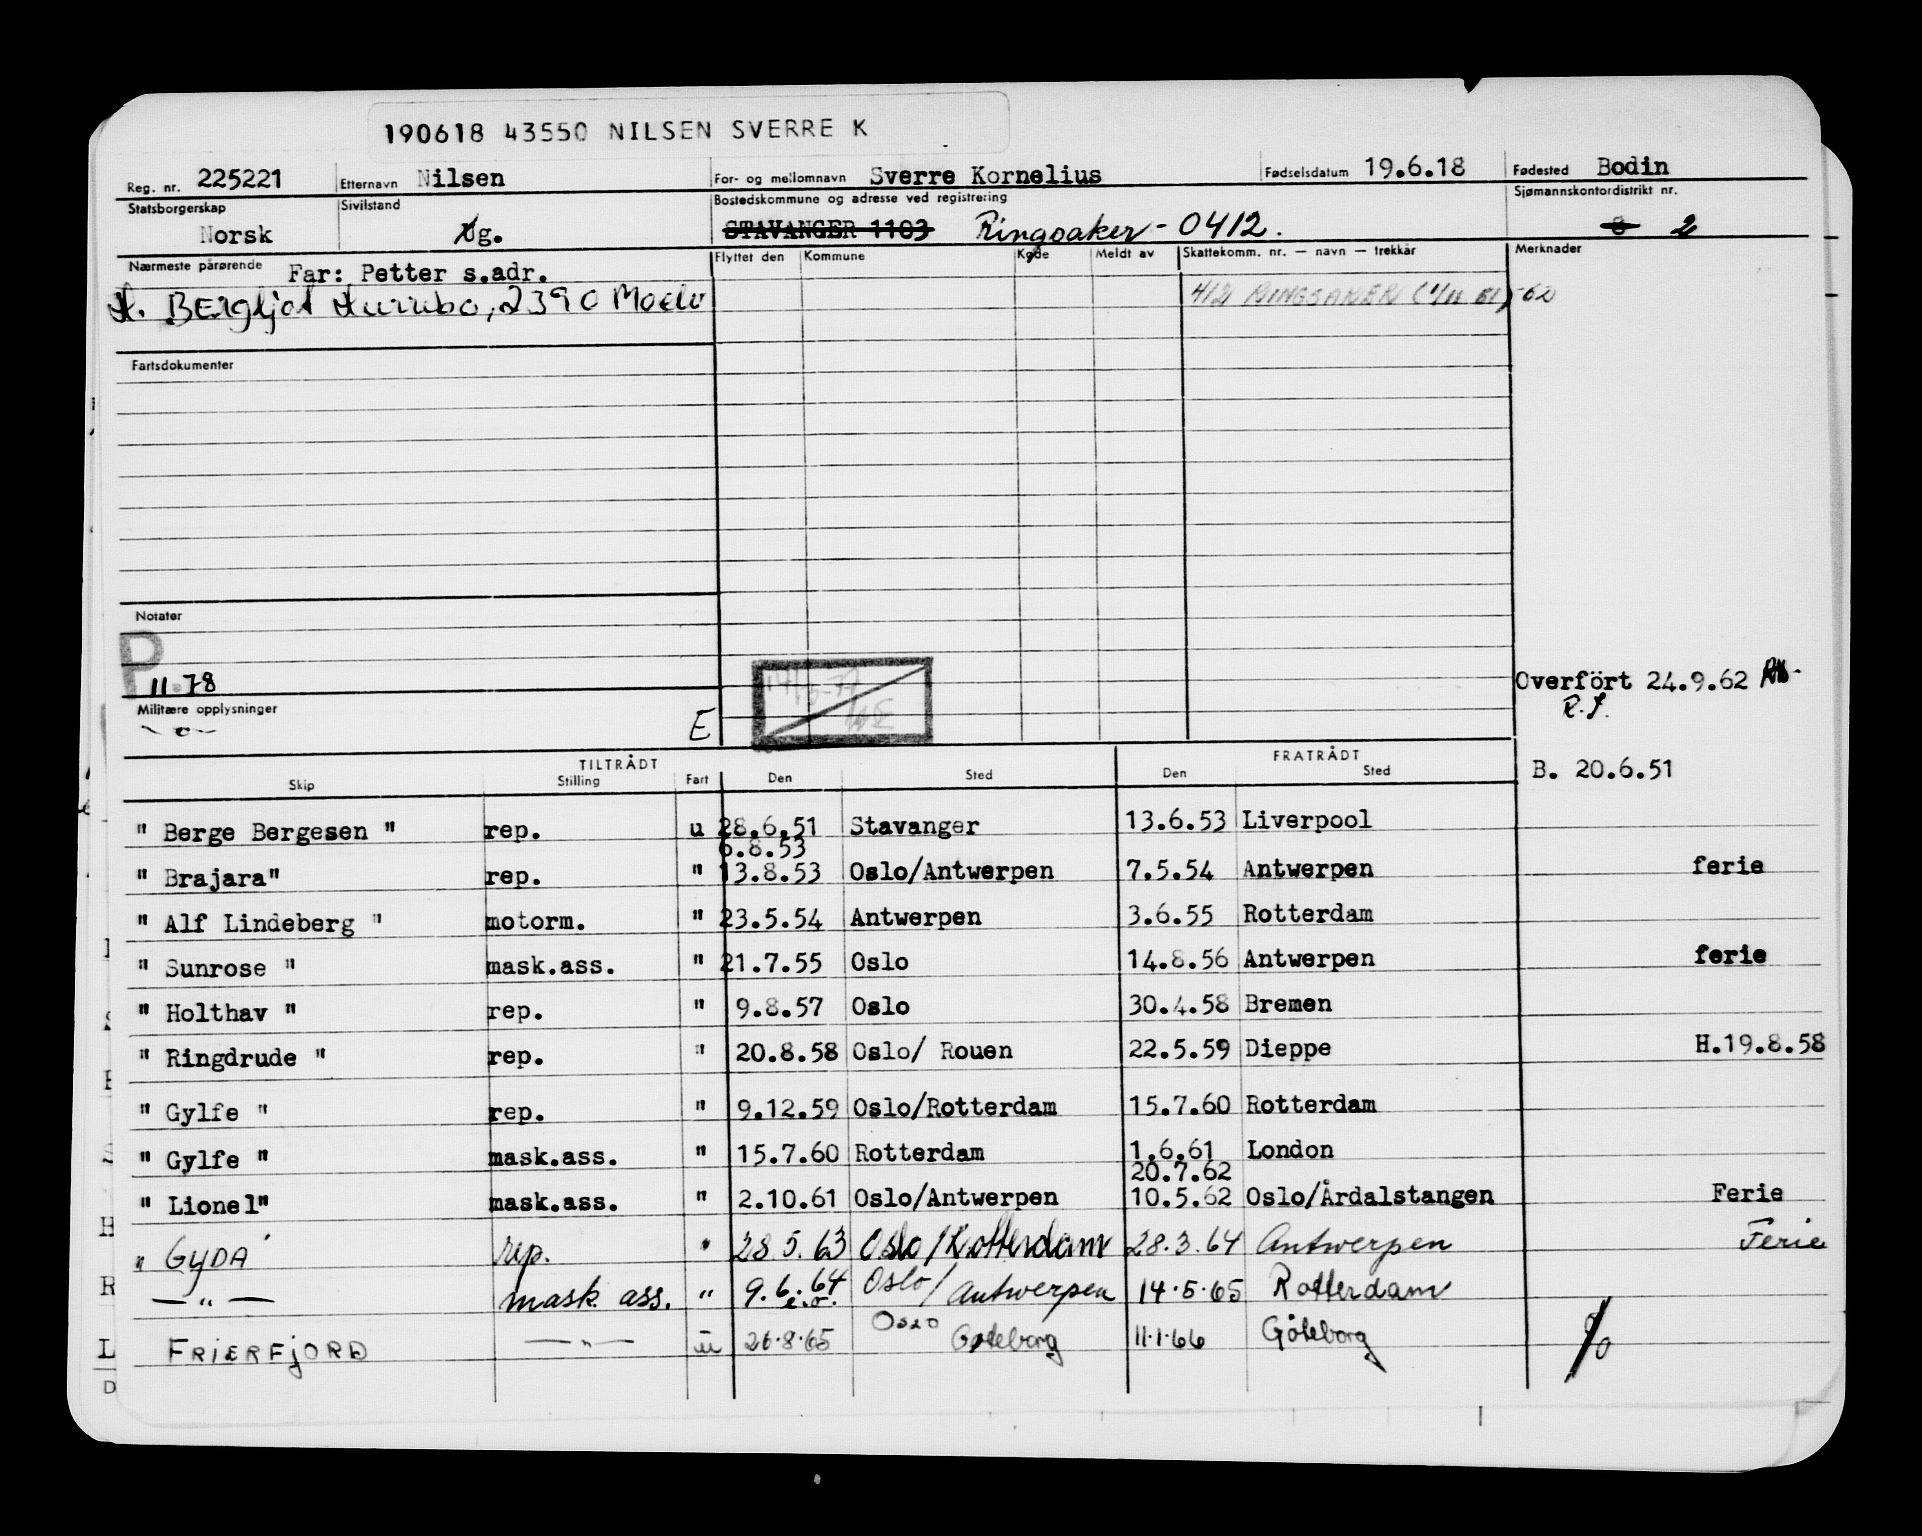 190618 43550 NILSEN SVERRE K
Reg. nr. 225221 Etternavn Nilsen For- og mellomnavn Sverre Kornelius Fødselsdatum 19.6.18 Fødested Bodin
Statsborgerskap Sivilstand Bostedskommune og adresse ved registrering Sjømannskontordistrikt nr.
Norsk g. STAVANGER 1103 Ringsaker - 0412. 2
Nærmeste pårørende Far: Petter s.adr. Flyttet den Kommune Kode Meldt av Skattekomm. nr. — navn — trekkår Merknader
Bergljot 2390 Moelv 412 RINGSAKER
Fartsdokumenter
Notater
P
11.78 Overfört 24.9.62
Militære opplysninger E
TILTRÅDT FRATRÅDT
Skip Stilling Fart Den Sted Den Sted B. 20.6.51
" Berge Bergesen " rep. u 28.6.51 Stavanger 13.6.53 Liverpool
6.8.53
" Brajara" rep. " 13.8.53 Oslo/Antwerpen 7.5.54 Antwerpen ferie
" Alf Lindeberg " motorm. " 23.5.54 Antwerpen 3.6.55 Rotterdam
" Sunrose " mask.ass. " 21.7.55 Oslo 14.8.56 Antwerpen ferie
" Holthav " rep. " 9.8.57 Oslo 30.4.58 Bremen
" Ringdrude " rep. " 20.8.58 Oslo/ Rouen 22.5.59 Dieppe H.19.8.58
" Gylfe " rep. " 9.12.59 Oslo/Rotterdam 15.7.60 Rotterdam
" Gylfe " mask.ass. " 15.7.60 Rotterdam 1.6.61 London
20.7.62
" Lionel" mask.ass. " 2.10.61 Oslo/Antwerpen 10.5.62 Oslo/Årdalstangen Ferie
" GYDA ' rep. " 28.5.63 Oslo/Rotterdam 28.3.64 Antwerpen Ferie
— " — mask. ass. " 9.6.64 e.o. Oslo/Antwerpen 14.5.65 Rotterdam
FRIERFJORD — " — u 26.8.65 Oslo Gøteborg 11.1.66 Göteborg